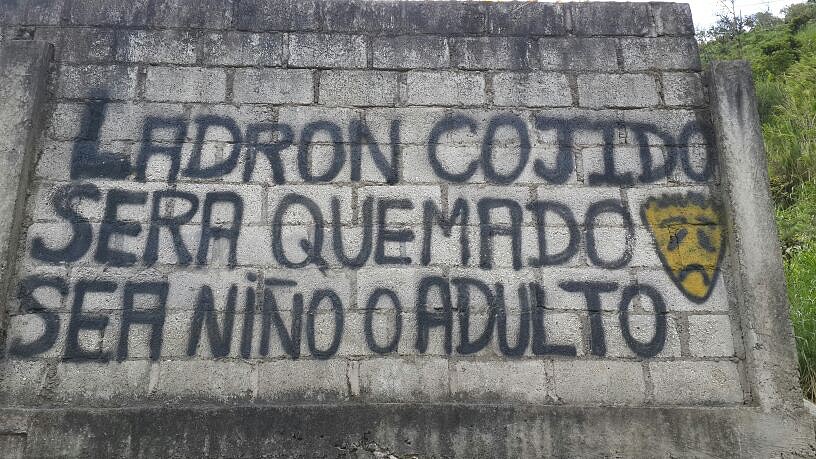 LADRON COJIDO
SERA QUEMADO
SEA NIÑO O ADULTO